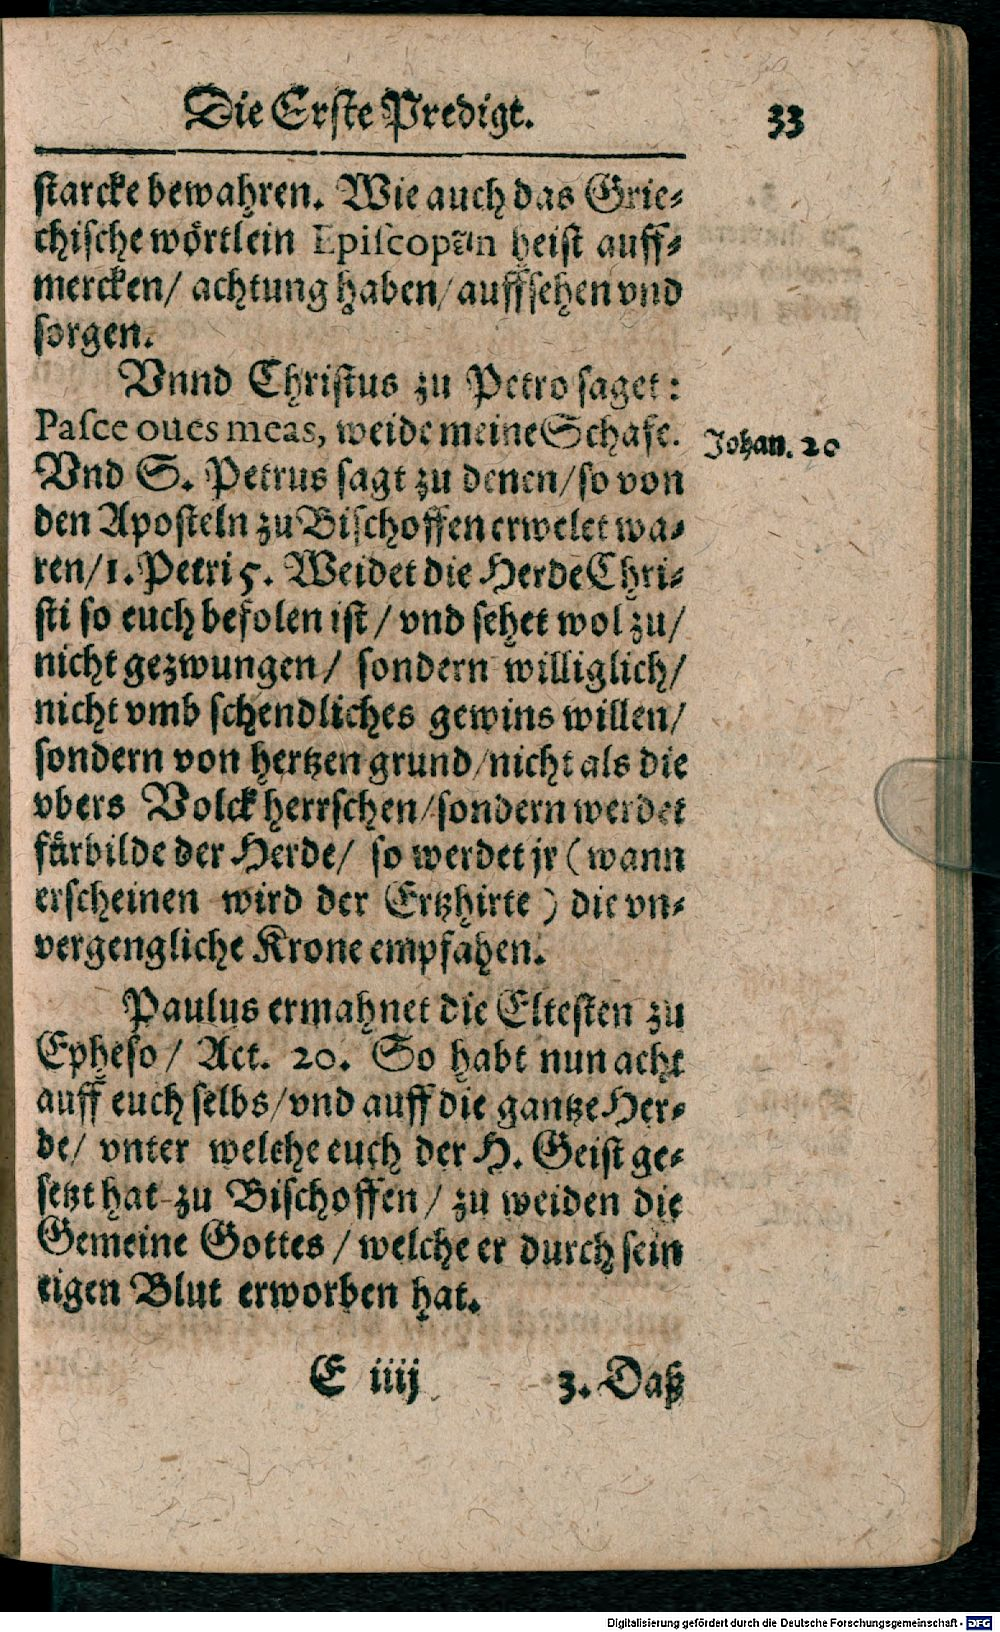 Die Erste Predigt. 33
starcke bewahren. Wie auch das Grie⸗
chische wörtlein Epiſcopēin heist auff⸗
mercken/ achtung haben/ auffsehen vnd
sorgen.
Vnnd Christus zu Petro saget:
Paſce oues meas, weide meine Schafe.
Johan. 20
Vnd S. Petrus sagt zu denen/ so von
den Aposteln zu Bischoffen erwelet wa⸗
ren/ 1. Petri 5. Weidet die Herde Chri⸗
sti so euch befolen ist/ vnd sehet wol zu/
nicht gezwungen/ sondern williglich/
nicht vmb schendliches gewins willen/
sondern von hertzen grund/ nicht als die
vbers Volck herrschen/ sondern werdet
fürbilde der Herde/ so werdet jr (wann
erscheinen wird der Ertzhirte) die vn⸗
vergengliche Krone empfahen.
Paulus ermahnet die Eltesten zu
Epheso/ Act. 20. So habt nun acht
auff euch selbs/ vnd auff die gantze Her⸗
de/ vnter welche euch der H. Geist ge⸗
setzt hat zu Bischoffen/ zu weiden die
Gemeine Gottes/ welche er durch sein
eigen Blut erworben hat.
E iiij 3. Daß
Digitalisierung gefördert durch die Deutsche Forschungsgemeinschaft - DFG